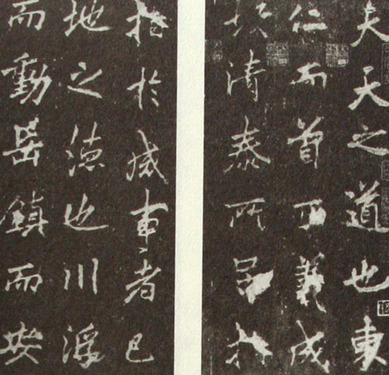 夫天之道也東
仁而首西義成
故清泰所
指於成事者已
地之德也川浮
而動岳鎮而安